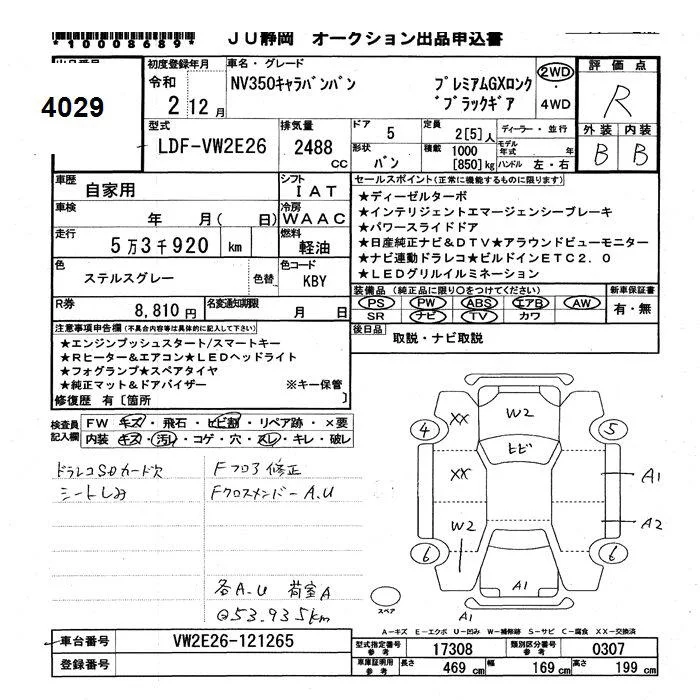 *10008689*
JU静岡 オークション出品申込書
出品番号
4029
初度登録年月
令和
2 12月
車名・グレード
NV350キャラバンバン
プレミアムGXロング
ブラックギア
2WD
4WD
評価点
R
外装 内装
B B
型式
LDF-VW2E26
排気量
2488 cc
ドア
5
形状
バン
定員
2[5]人
積載
1000
[850]kg
ディーラー・並行
モデル年式 年
ハンドル 左・右
車歴
自家用
シフト
IAT
車検
年 月( 日)
冷房
WAAC
走行
5万3千920 km
燃料
軽油
色
ステルスグレー
色替
色コード
KBY
R券
8,810円
名変通知期限
月 日
セールスポイント(正常に機能するものに限ります)
★ディーゼルターボ
★インテリジェントエマージェンシーブレーキ
★パワースライドドア
★日産純正ナビ&DTV★アラウンドビューモニター
★ナビ連動ドラレコ★ビルドインETC2.0
★LEDグリルイルミネーション
装備品(純正品に限り〇をつけてください)
PS PW ABS エアB AW
SR ナビ TV カワ
新車保証書
有・無
後日品
取説・ナビ取説
注意事項申告欄(不具合内容等は具体的に記入して下さい)
★エンジンプッシュスタート/スマートキー
★Rヒーター&エアコン★LEDヘッドライト
★フォグランプ★スペアタイヤ
★純正マット&ドアバイザー ※キー保管
修復歴 有[箇所 ]
検査員記入欄
FW キズ・飛石・ヒビ割・リペア跡・×要
内装 キズ・汚レ・コゲ・穴・スレ・キレ・破レ
ドラレコSDカード欠
シートしみ
Fフロア修正
FクロスメンバーA.U
各A.U 荷室A
@53.935km
W2
XX
ヒビ
XX
W2
4
5
6
6
A1
A2
A1
A1
スペア
A-キズ E-エクボ U-凹み W-補修跡 S-サビ C-腐食 XX-交換済
車台番号
VW2E26-121265
登録番号
型式指定番号 参考
17308
類別区分番号 参考
0307
車庫証明用 参考
長さ 469 cm
幅 169 cm
高さ 199 cm